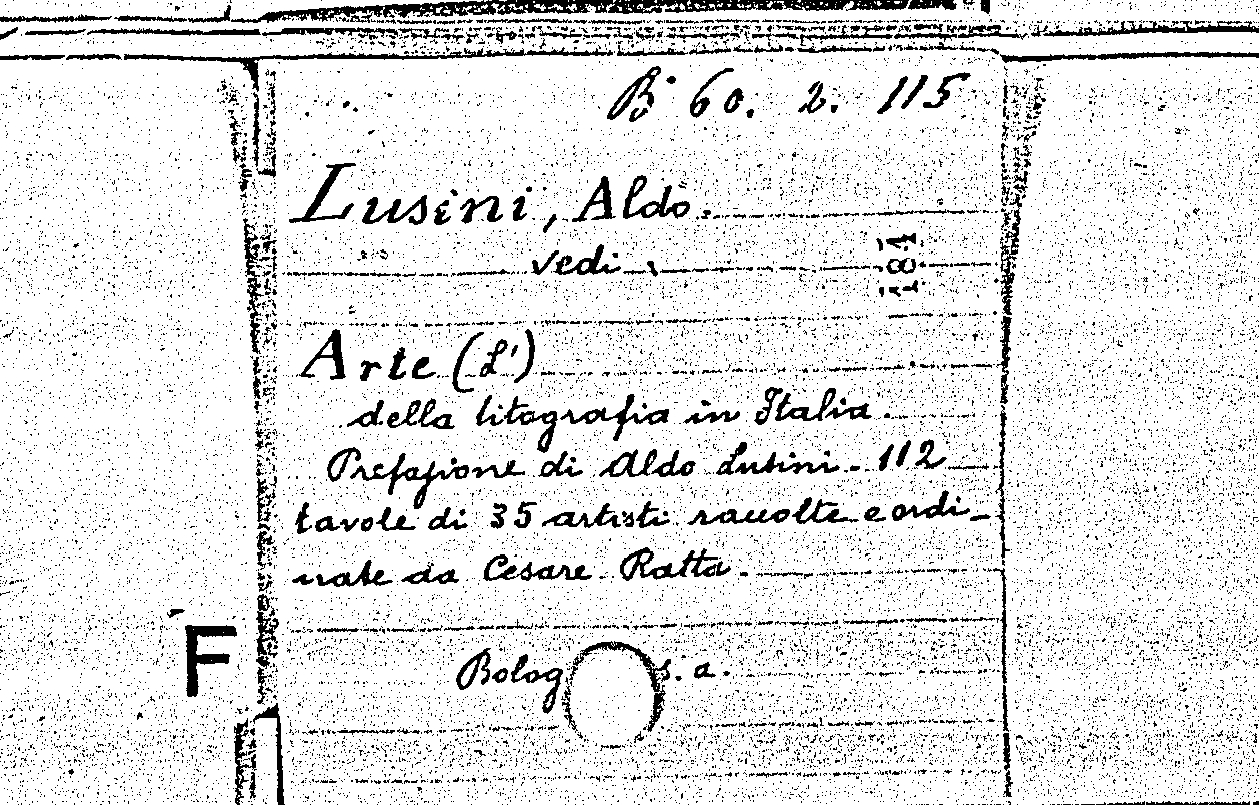 B 60. 2. 115
Lusini, Aldo.
vedi
184
Arte (L')
della litografia in Italia.
Prefazione di Aldo Lusini - 112
tavole di 35 artisti raccolte e ordi-
nate da Cesare Ratta.
F
Bolog s. a.